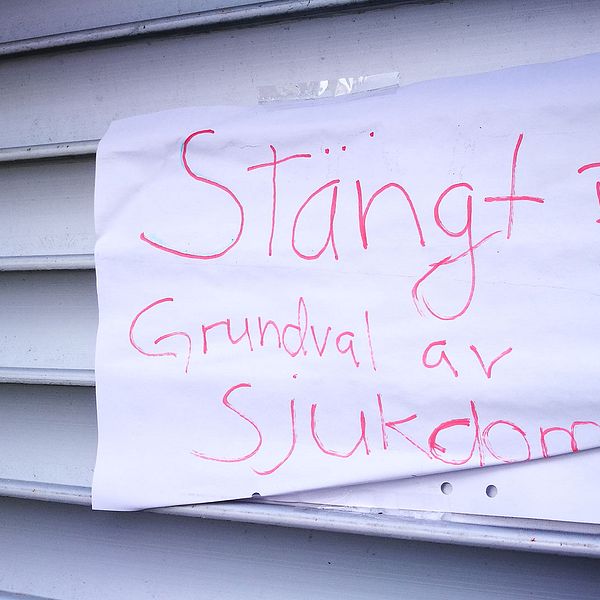 Stängt
Grundval av
Sjukdom